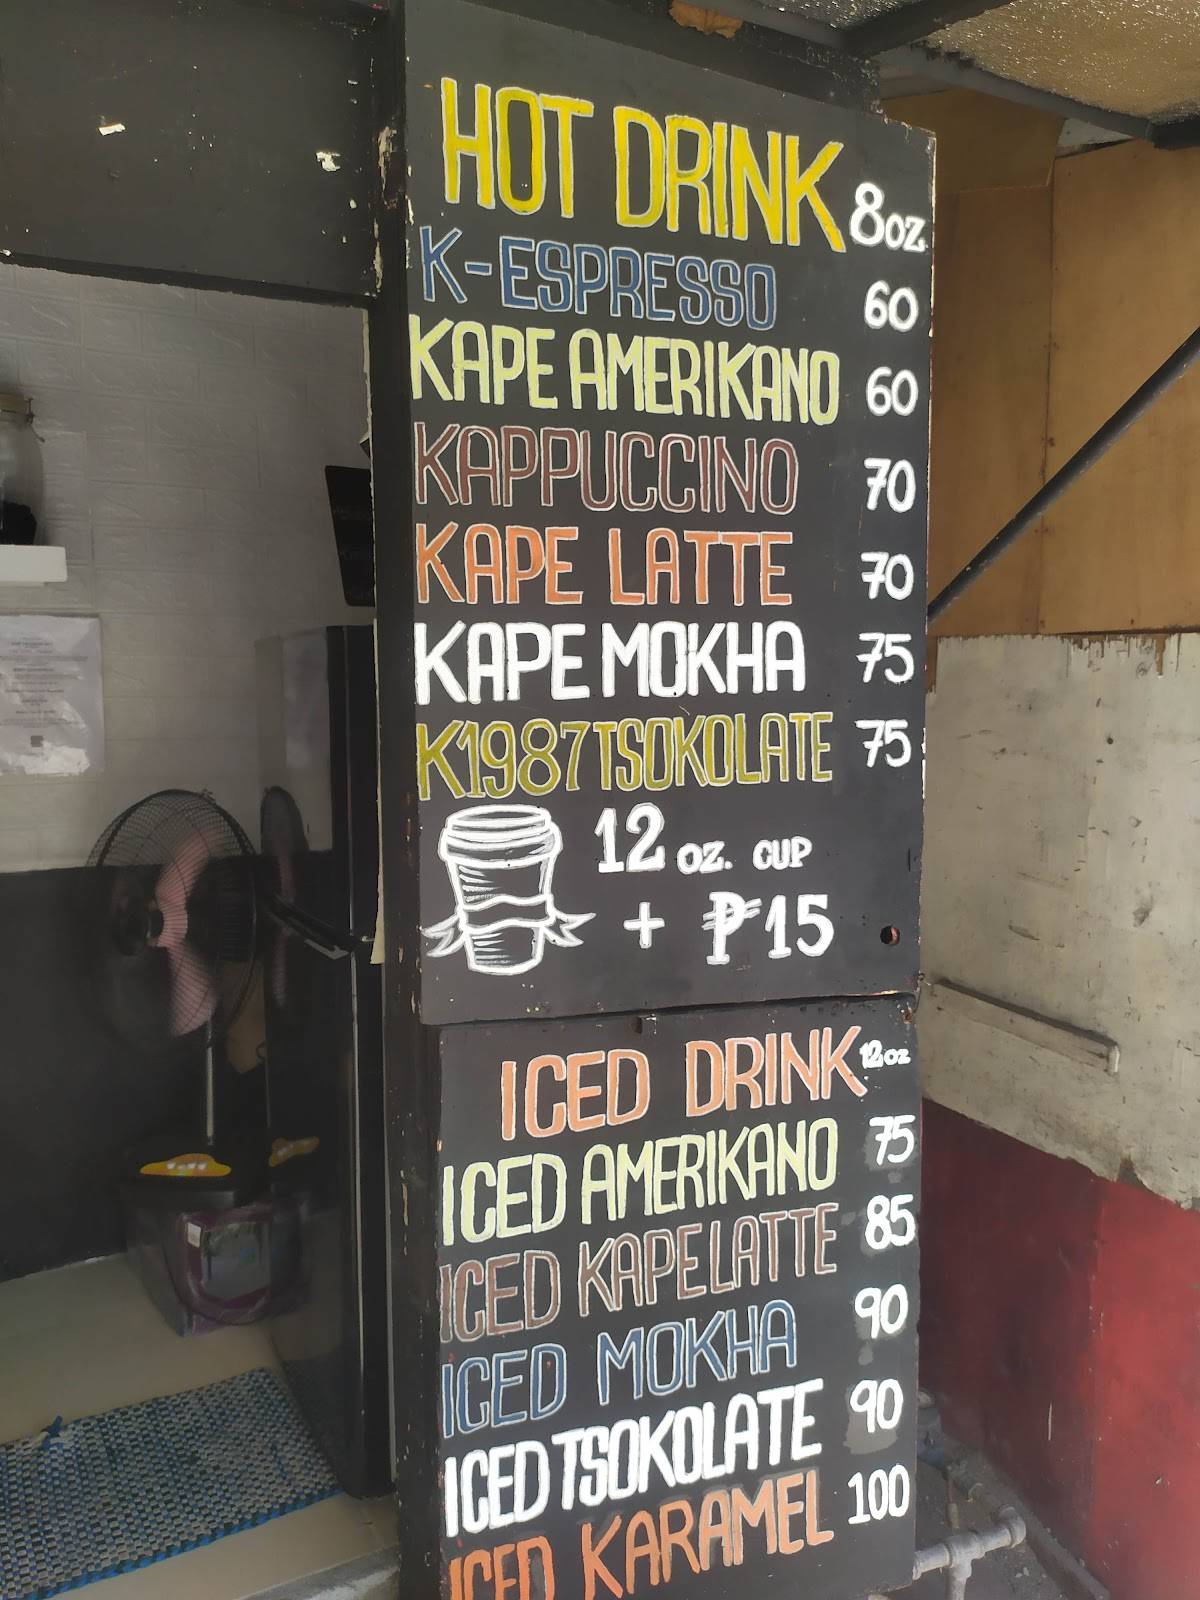 HOT DRINK 8oz
K-ESPRESSO 60
KAPE AMERIKANO 60
KAPPUCCINO 70
KAPE LATTE 70
KAPE MOKHA 75
K1987 TSOKOLATE 75
12 oz. CUP
+ ₱15
ICED DRINK 12oz
ICED AMERIKANO 75
ICED KAPE LATTE 85
ICED MOKHA 90
ICED TSOKOLATE 90
ICED KARAMEL 100